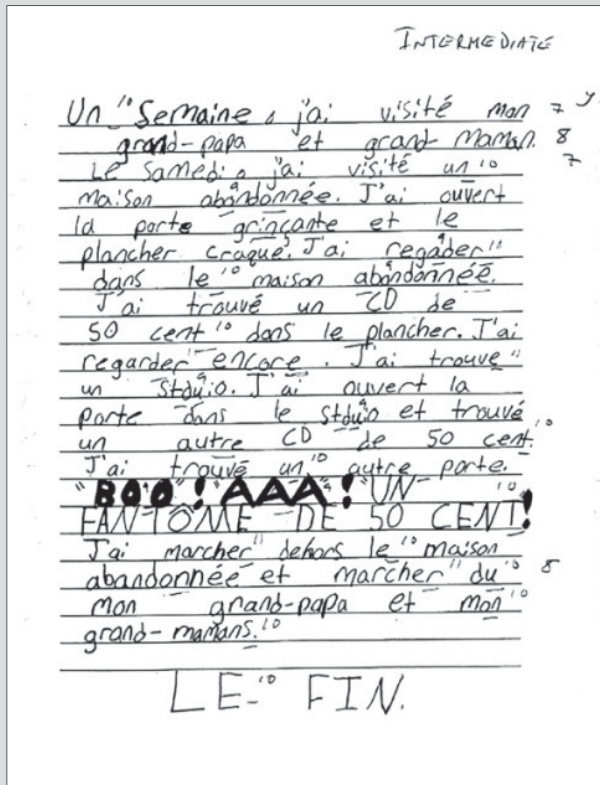 INTERMEDIATE
Un "10 Semaine, j'ai visité mon 7
grand-papa et grand-Maman. 8
Le Samedi, j'ai visité un "10 7
maison abandonnée. J'ai ouvert
la porte grinçante et le
plancher craque. J'ai regåder "11
dans le "10 maison abandonnée.
J'ai trouvé un CD de
50 cent "10 dans le plancher. J'ai
regarder" encore. J'ai trouve "11
un Stduio. J'ai ouvert la
porte dans le Stduio et trouvé
un autre CD de 50 cent. "10
J'ai trouvé un "10 autre porte.
"BOO"! "AAA"! UN "10
FANTÔME DE 50 CENT!
J'ai marcher" dehors le "10 maison
abandonnée et marcher" du "10 8
mon grand-papa et mon "10
grand-mamans. "10
LE "10 FIN.